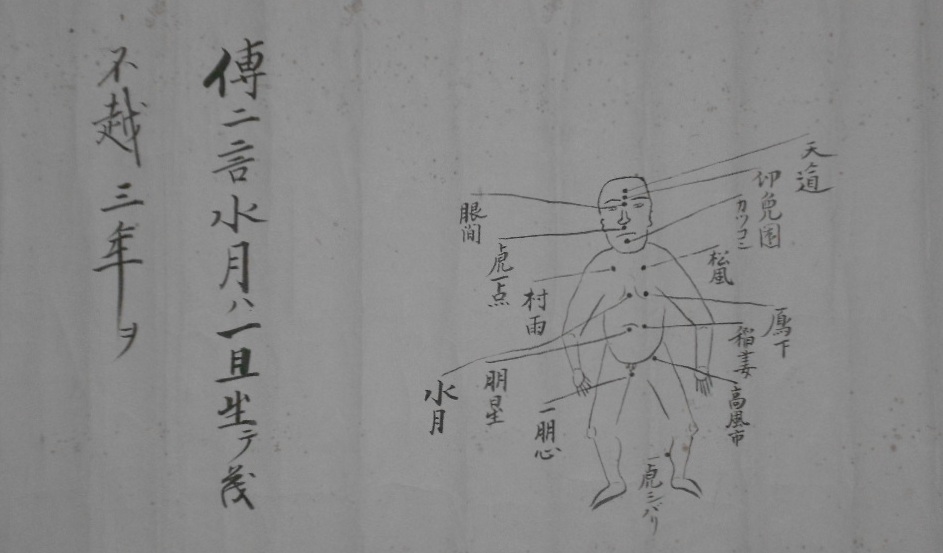 天道
仰兎囹
カツコミ
松風
鴈下
稲妻
高風市
一虎シバリ
眼間
虎一点
村雨
水月
明星
一明心
傳ニ言水月ハ一旦生テ茂
不越三年ヲ